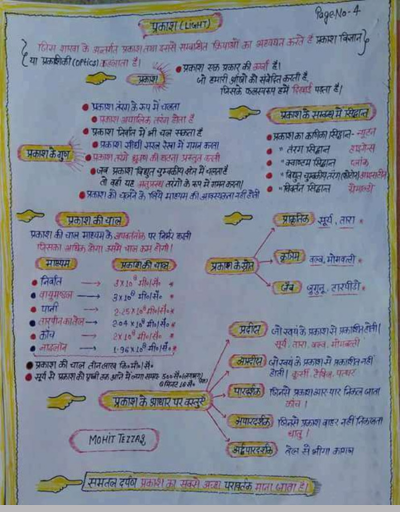 Page No- 4
प्रकाश (LIGHT)
जिस शाखा के अन्तर्गत प्रकाश तथा उससे सम्बन्धित क्रियाओं का अध्ययन करते है प्रकाश विज्ञान
या प्रकाशिकी (optics) कहलाता है।
प्रकाश
प्रकाश एक प्रकार की ऊर्जा है।
जो हमारी आँखों को संवेदित करती है
जिसके फलस्वरूप हमें दिखाई पड़ता है।
प्रकाश के गुण
प्रकाश तरंग के रूप में चलता
प्रकाश अनुप्रस्थ तरंग होता है
प्रकाश निर्वात में भी चल सकता है
प्रकाश सीधी सरल रेखा में गमन करता
प्रकाश तरंगे की घटना प्रस्तुत करती
जब प्रकाश विद्युत चुम्बकीय क्षेत्र में चलता है
तो वहाँ यह अनुप्रस्थ तरंगों के रूप में गमन करता।
प्रकाश को चलने के लिये माध्यम की आवश्यकता नहीं होती
प्रकाश के सम्बन्ध में सिद्धान्त
प्रकाश का कणिका सिद्धान्त- न्यूटन
" तरंग सिद्धान्त हाइगेन्स
" क्वाण्टम सिद्धान्त प्लांक
" विद्युत चुम्बकीय तरंग
" सिद्धान्त
प्रकाश की चाल
प्रकाश की चाल माध्यम के अपवर्तनांक पर निर्भर करती
जिसका अधिक होगा उसमें चाल कम होगी।
माध्यम प्रकाश की चाल
निर्वात → 3×10⁸ मी०/से०
वायुमण्डल → 3×10⁸ मी०/से०
पानी → 2.25×10⁸ मी०/से०
तारपीन का तेल → 2.04×10⁸ मी०/से०
काँच → 2×10⁸ मी०/से०
नायलॉन → 1.96×10⁸ मी०/से०
प्रकाश की चाल तीन लाख कि०मी०/से०
सूर्य से प्रकाश को पृथ्वी तक आने में लगा समय 500 सेकेण्ड
8 मिनट
प्रकाश के स्रोत
प्राकृतिक सूर्य, तारा
कृत्रिम बल्ब, मोमबत्ती
जैव जुगुनू,
प्रकाश के आधार पर वस्तुएँ
प्रदीप्त जो स्वयं के प्रकाश से प्रकाशित होती।
सूर्य, तारा, बल्ब, मोमबत्ती
अप्रदीप्त जो स्वयं के प्रकाश से प्रकाशित नहीं
होती। कुर्सी, टेबिल, पत्थर
पारदर्शक जिससे प्रकाश आर-पार निकल जाता
काँच।
अपारदर्शक जिससे प्रकाश बाहर नहीं निकलता
धातु।
अर्द्धपारदर्शक तेल से भीगा कागज
MOHIT
समतल दर्पण प्रकाश का सबसे अच्छा परावर्तक माना जाता है।